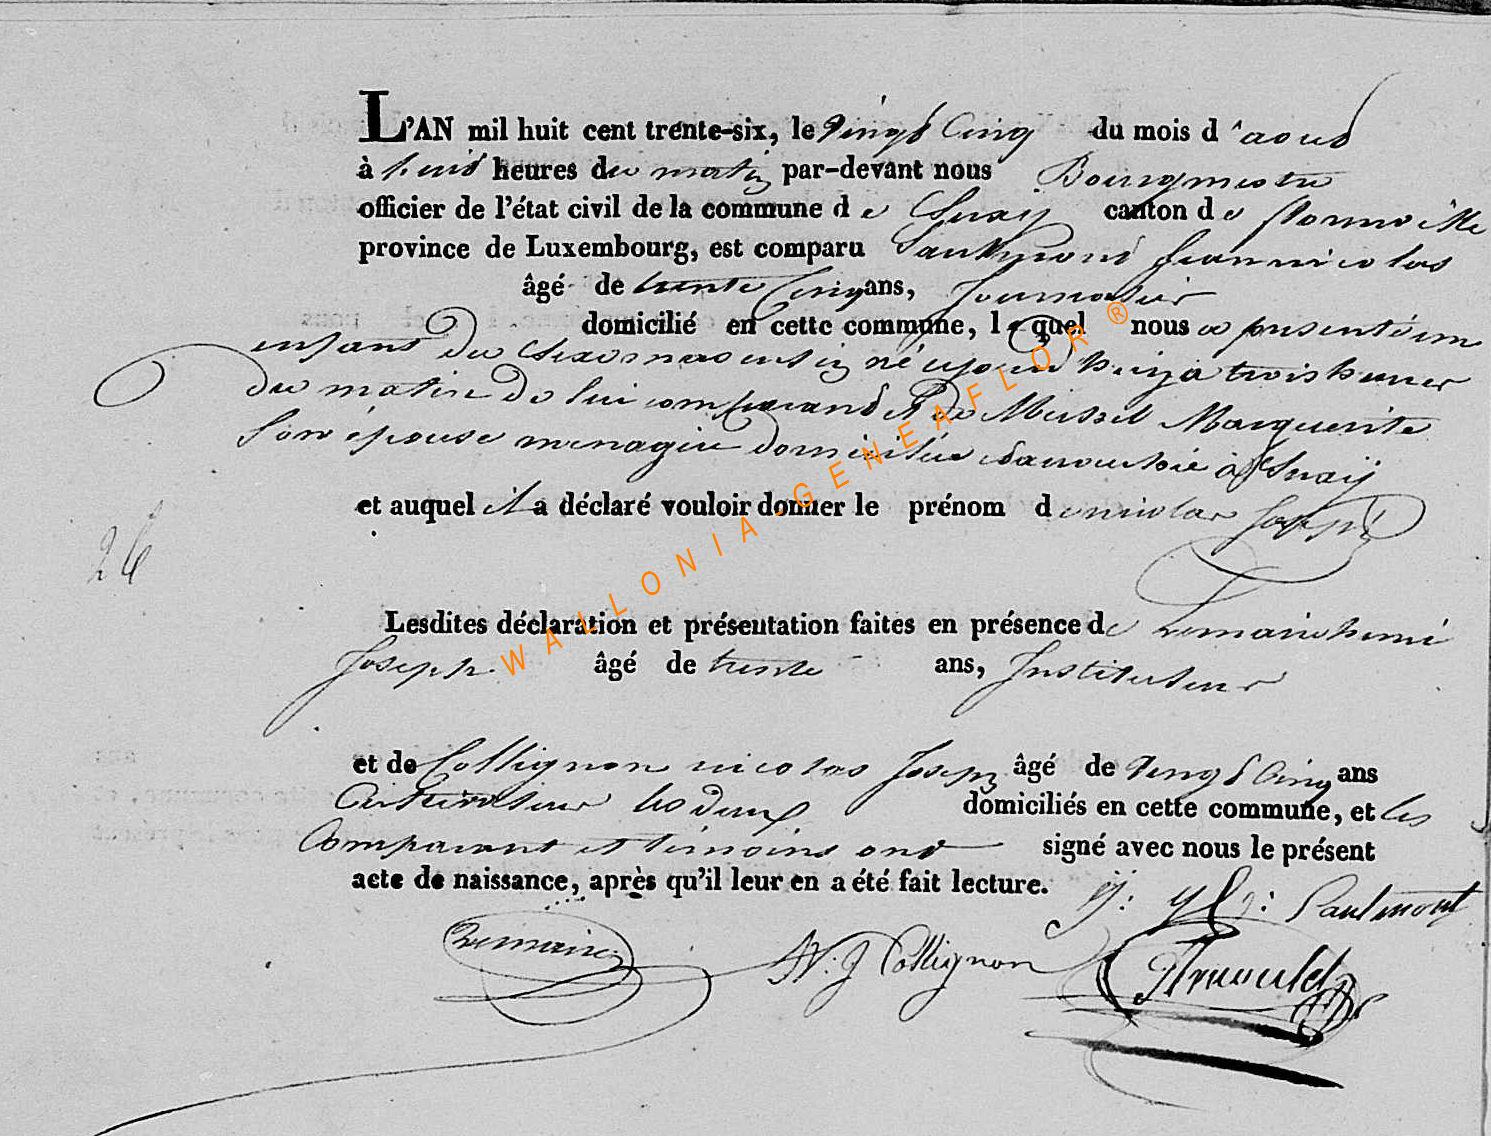 L'AN mil huit cent trente-six, le vingt Cinq du mois d'aout
à huit heures du matin par-devant nous Bourgmestre
officier de l'état civil de la commune de Suxy canton de florenville
province de Luxembourg, est comparu Saulmont Jean nicolas
âgé de trente Cinq ans, Journalier
domicilié en cette commune, lequel nous a presenté un
enfant du Sexe masculin né aujourd'huy a trois heures
du matin de lui comparant et de Marguerite
Son épouse menagere domiciliée avec lui à Suxy
et auquel il a déclaré vouloir donner le prénom de nicolas Joseph
26
Lesdites déclaration et présentation faites en présence de Lemaire henri
Joseph âgé de trente ans, Instituteur
et de Collignon nicolas Joseph âgé de vingt Cinq ans
Cultivateur tous deux domiciliés en cette commune, et les
Comparant et témoins ont signé avec nous le présent
acte de naissance, après qu'il leur en a été fait lecture.
Saulmont
Lemaire N: J Collignon Arnould
WALLONIA-GENEAFLOR ®